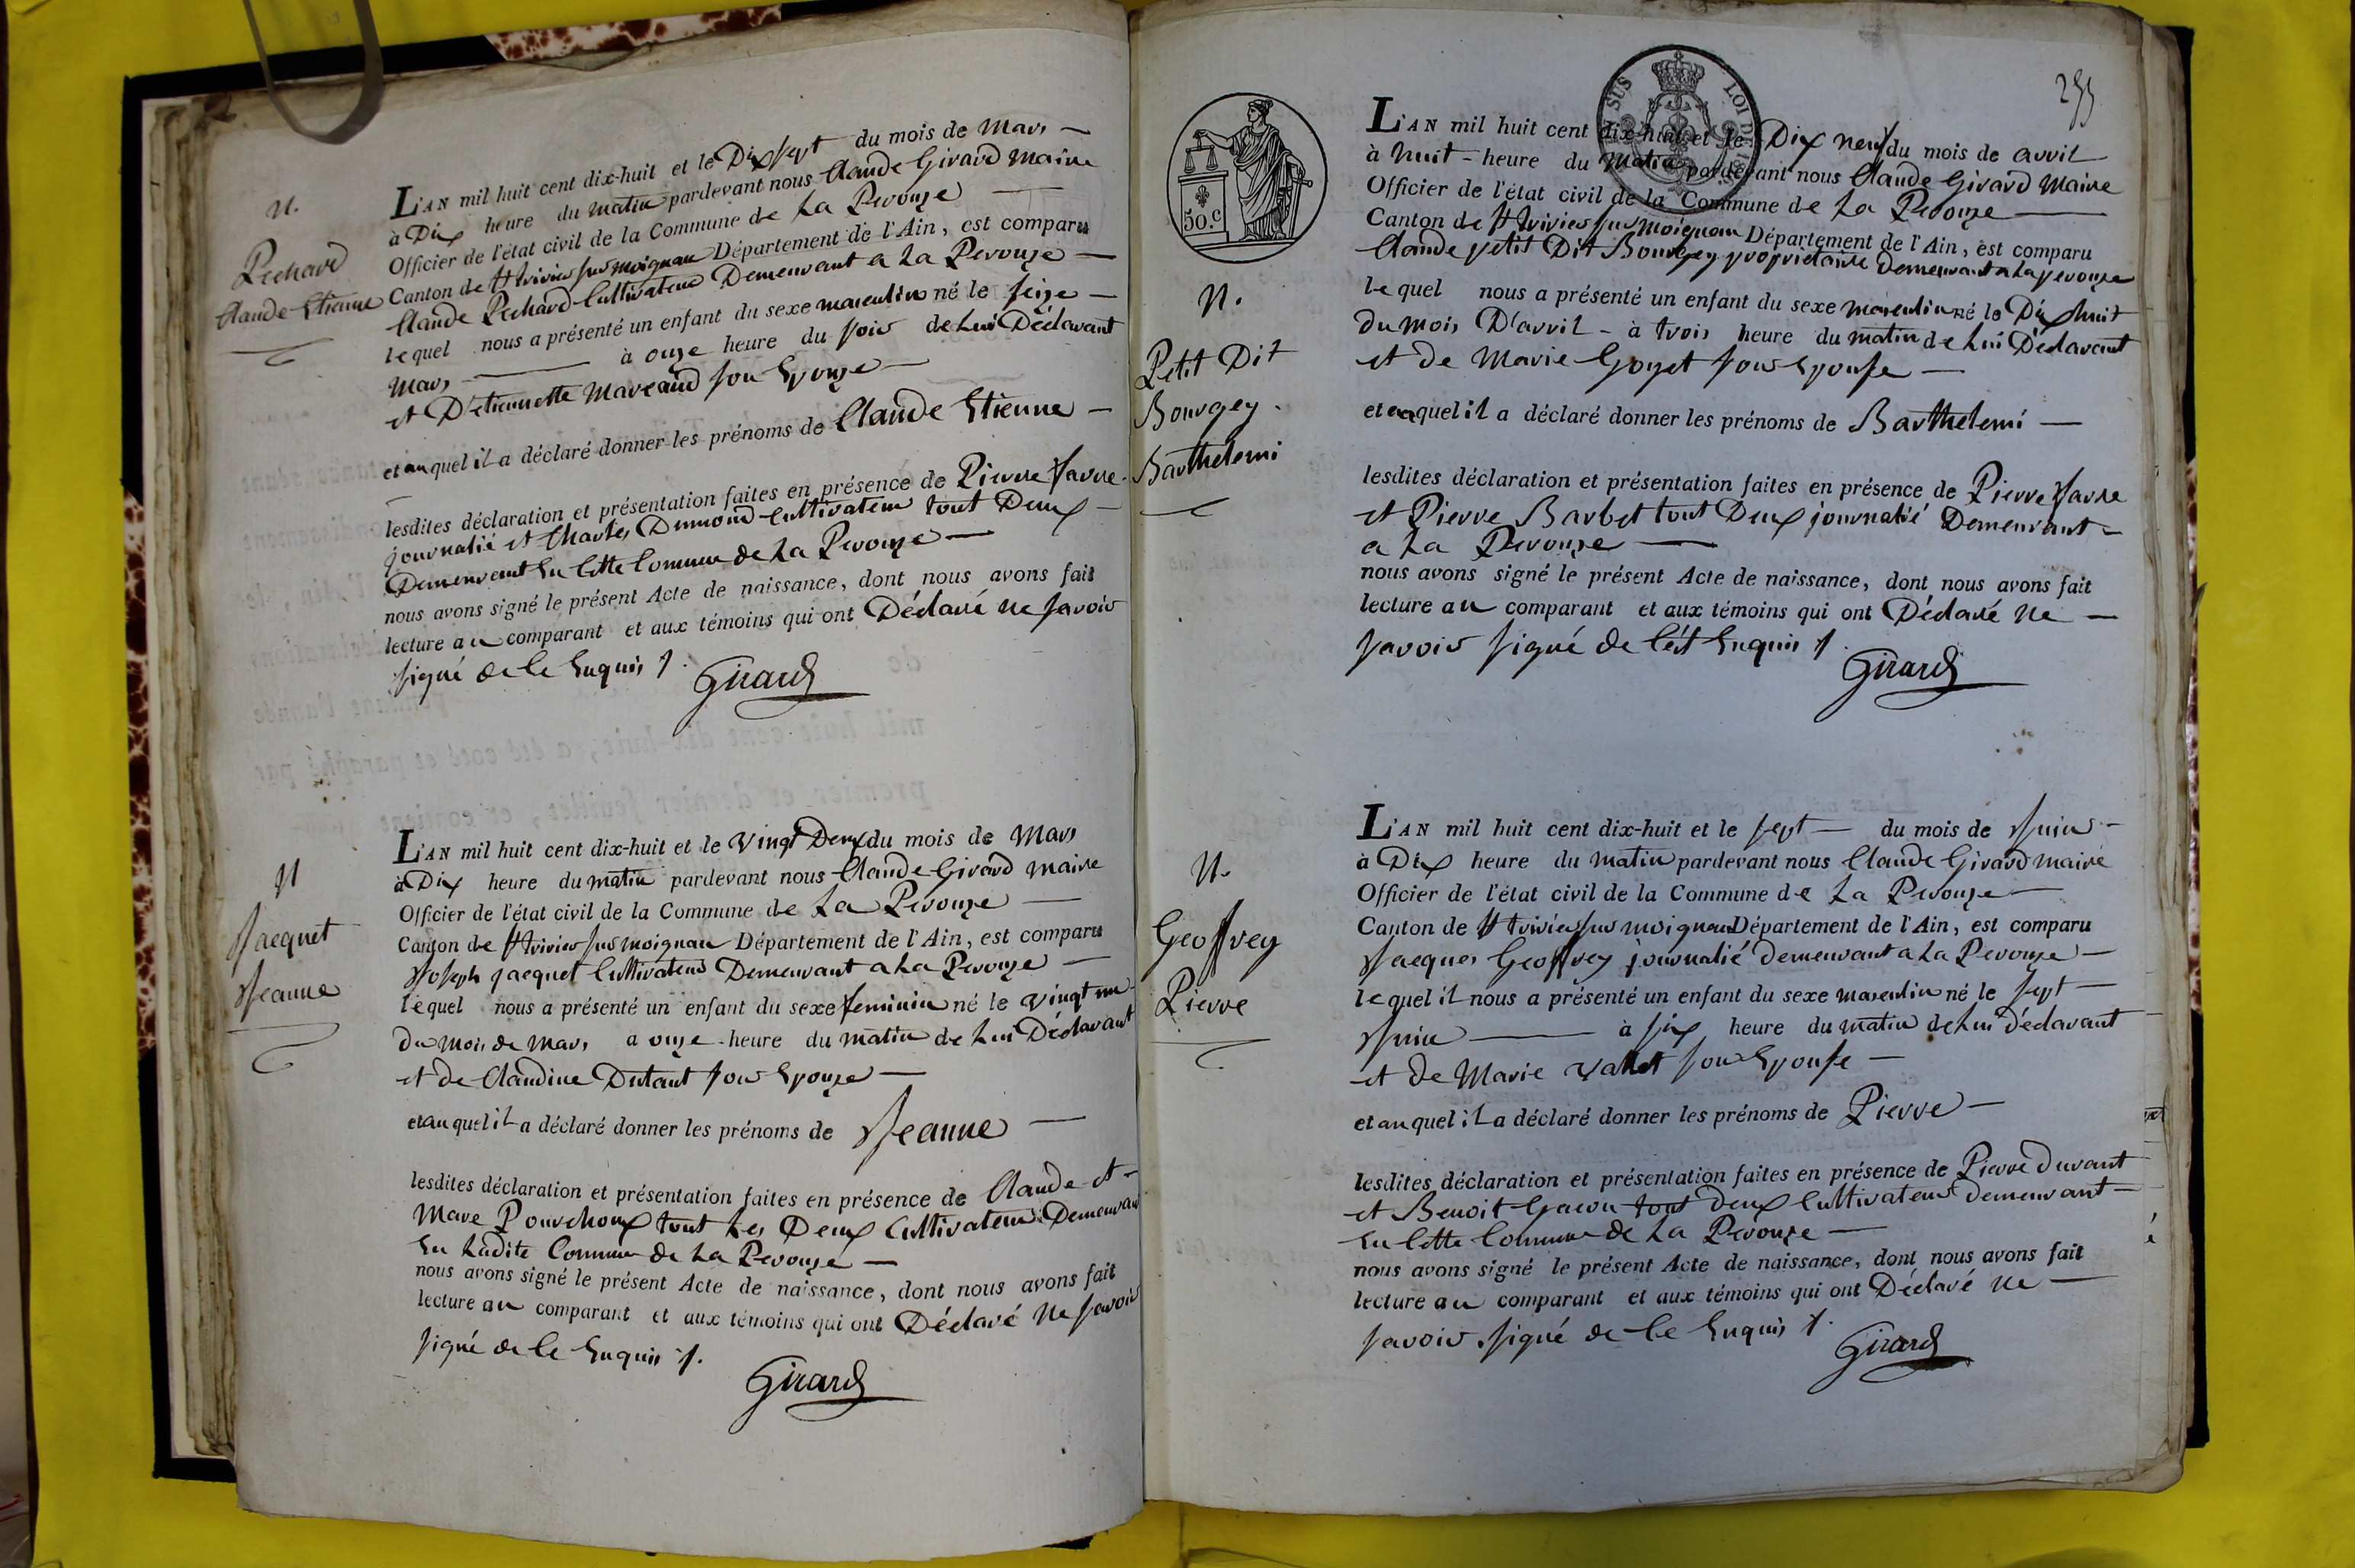 N.
Pechard
Claude Etienne
L'AN mil huit cent dix-huit et le Dix sept du mois de Mars
à Dix heure du matin pardevant nous Claude Girard Maire
Officier de l'état civil de la Commune de La Perouze
Canton de St trivier sur moignan Département de l'Ain, est comparu
Claude Pechard Cultivateur Demeurant a La Perouze
lequel nous a présenté un enfant du sexe masculin né le seize
Mars à onze heure du soir de Lui Déclarant
et D'etiennette Mareand son Epouze
et auquel il a déclaré donner les prénoms de Claude Etienne
lesdites déclaration et présentation faites en présence de Pierre Favre
journalié et Charles Dumond Cultivateur tout Deux
Demeurant En Cette Commune de La Perouze
nous avons signé le présent Acte de naissance, dont nous avons fait
lecture au comparant et aux témoins qui ont Déclaré ne savoir
signé de Ce Enquis
Girard
N
Jacquet
Jeanne
L'AN mil huit cent dix-huit et le vingt Deux du mois de Mars
à Dix heure du matin pardevant nous Claude Girard Maire
Officier de l'état civil de la Commune de La Perouze
Canton de St trivier sur moignan Département de l'Ain, est comparu
Joseph jacquet Cultivateur Demeurant a La Perouze
lequel nous a présenté un enfant du sexe feminin né le vingt un
du mois de mars a onze heure du matin de Lui Déclarant
et de Claudine Dutant son Epouze
et auquel il a déclaré donner les prénoms de Jeanne
lesdites déclaration et présentation faites en présence de Claude et
Marc Pourchoux tout Les Deux Cultivateur Demeurant
En Ladite Commune de La Perouze
nous avons signé le présent Acte de naissance, dont nous avons fait
lecture au comparant et aux témoins qui ont Déclaré ne savoir
signé de Ce Enquis
Girard
50.c
SUS
LOI DE 18
N.
Petit Dit
Bourgey
Barthelemi
L'AN mil huit cent dix-huit et le Dix neuf du mois de avril
à huit heure du Matin pardevant nous Claude Girard Maire
Officier de l'état civil de la Commune de La Perouze
Canton de St trivier sur moignan Département de l'Ain, est comparu
Claude petit Dit Bourgey proprietaire demeurant a La perouze
lequel nous a présenté un enfant du sexe masculin né le Dix huit
du mois D'avril à trois heure du matin de Lui Déclarant
et de Marie Goyet son Epouse
et auquel il a déclaré donner les prénoms de Barthelemi
lesdites déclaration et présentation faites en présence de Pierre Favre
et Pierre Barbet tout Deux journalié Demeurant
a La Perouze
nous avons signé le présent Acte de naissance, dont nous avons fait
lecture au comparant et aux témoins qui ont Déclaré ne
savoir signé de Cest Enquis
Girard
N.
Geoffrey
Pierre
L'AN mil huit cent dix-huit et le sept du mois de Juin
à Dix heure du matin pardevant nous Claude Girard maire
Officier de l'état civil de la Commune de La Perouze
Canton de St trivier sur moignan Département de l'Ain, est comparu
Jacques Geoffrey journalié demeurant a La Perouze
lequel il nous a présenté un enfant du sexe masculin né le sept
Juin à six heure du matin de Lui déclarant
et de Marie vallet son Epouse
et auquel il a déclaré donner les prénoms de Pierre
lesdites déclaration et présentation faites en présence de Pierre durant
et Benoit Gacon tout deux Cultivateur demeurant
En Cette Commune de La Perouze
nous avons signé le présent Acte de naissance, dont nous avons fait
lecture au comparant et aux témoins qui ont Déclaré ne
savoir signé de Ce Enquis
Girard